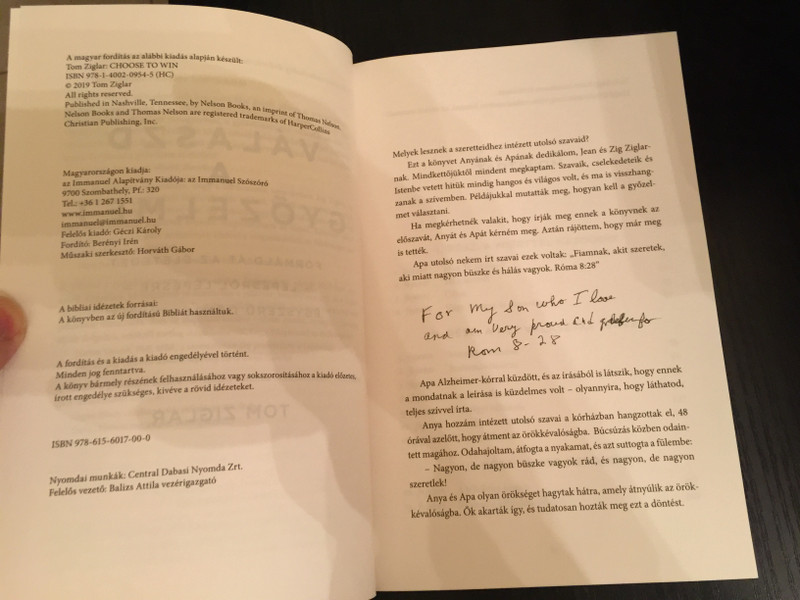 A magyar fordítás az alábbi kiadás alapján készült:
Tom Ziglar: CHOOSE TO WIN
ISBN 978-1-4002-0954-5 (HC)
© 2019 Tom Ziglar
All rights reserved.
Published in Nashville, Tennessee, by Nelson Books, an imprint of Thomas Nelson.
Nelson Books and Thomas Nelson are registered trademarks of HarperCollins
Christian Publishing, Inc.
Magyarországon kiadja:
az Immanuel Alapítvány Kiadója: az Immanuel Szószóró
9700 Szombathely, Pf.: 320
Tel.: +36 1 267 1551
www.immanuel.hu
immanuel@immanuel.hu
Felelős kiadó: Géczi Károly
Fordító: Berényi Irén
Műszaki szerkesztő: Horváth Gábor
A bibliai idézetek forrásai:
A könyvben az új fordítású Bibliát használtuk.
A fordítás és a kiadás a kiadó engedélyével történt.
Minden jog fenntartva.
A könyv bármely részének felhasználásához vagy sokszorosításához a kiadó előzetes,
írott engedélye szükséges, kivéve a rövid idézeteket.
ISBN 978-615-6017-00-0
Nyomdai munkák: Central Dabasi Nyomda Zrt.
Felelős vezető: Balizs Attila vezérigazgató
Melyek lesznek a szeretteidhez intézett utolsó szavaid?
Ezt a könyvet Anyának és Apának dedikálom, Jean és Zig Ziglar-
nak. Mindkettőjüktől mindent megkaptam. Szavaik, cselekedeteik és
Istenbe vetett hitük mindig hangos és világos volt, és ma is visszhang-
zanak a szívemben. Példájukkal mutatták meg, hogyan kell a győzel-
met választani.
Ha megkérhetnék valakit, hogy írják meg ennek a könyvnek az
előszavát, Anyát és Apát kérném meg. Aztán rájöttem, hogy már meg
is tették.
Apa utolsó nekem írt szavai ezek voltak: „Fiamnak, akit szeretek,
aki miatt nagyon büszke és hálás vagyok. Róma 8:28”
For My Son who I love
and am very proud and for
Rom 8-28
Apa Alzheimer-kórral küzdött, és az írásából is látszik, hogy ennek
a mondatnak a leírása is küzdelmes volt – olyannyira, hogy láthatod,
teljes szívvel írta.
Anya hozzám intézett utolsó szavai a kórházban hangzottak el, 48
órával azelőtt, hogy átment az örökkévalóságba. Búcsúzás közben odain-
tett magához. Odahajoltam, átfogta a nyakamat, és azt suttogta a fülembe:
– Nagyon, de nagyon büszke vagyok rád, és nagyon, de nagyon
szeretlek!
Anya és Apa olyan örökséget hagytak hátra, amely átnyúlik az örök-
kévalóságba. Ők akarták így, és tudatosan hozták meg ezt a döntést.
TOM ZIGLAR